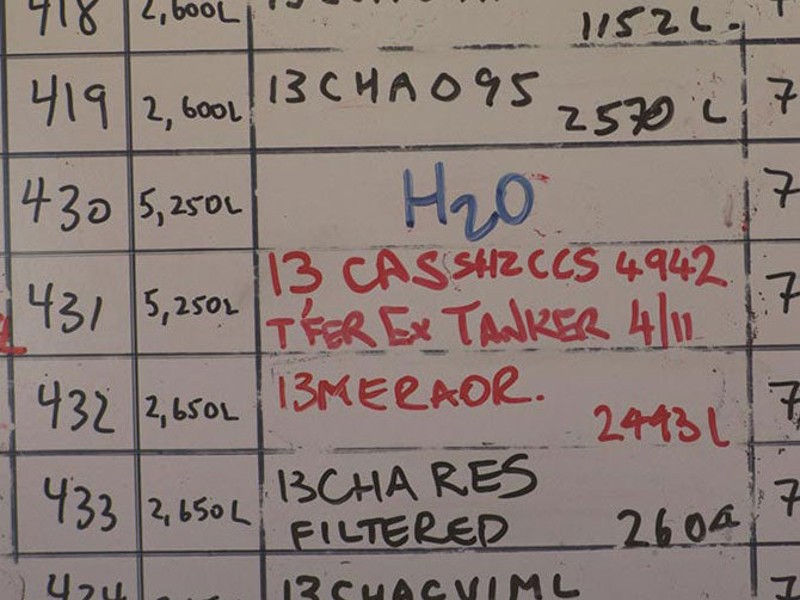 418 2,600L
1152L.
419 2,600L 13CHA095 2570 L 7
430 5,250L H2O 7
431 5,250L 13 CASSHZCCS 4942 7
T'FER Ex TANKER 4/11
432 2,650L 13MERAOR. 7
2493L
433 2,650L 13CHA RES 7
FILTERED 2604
434 13CHACVIML 7